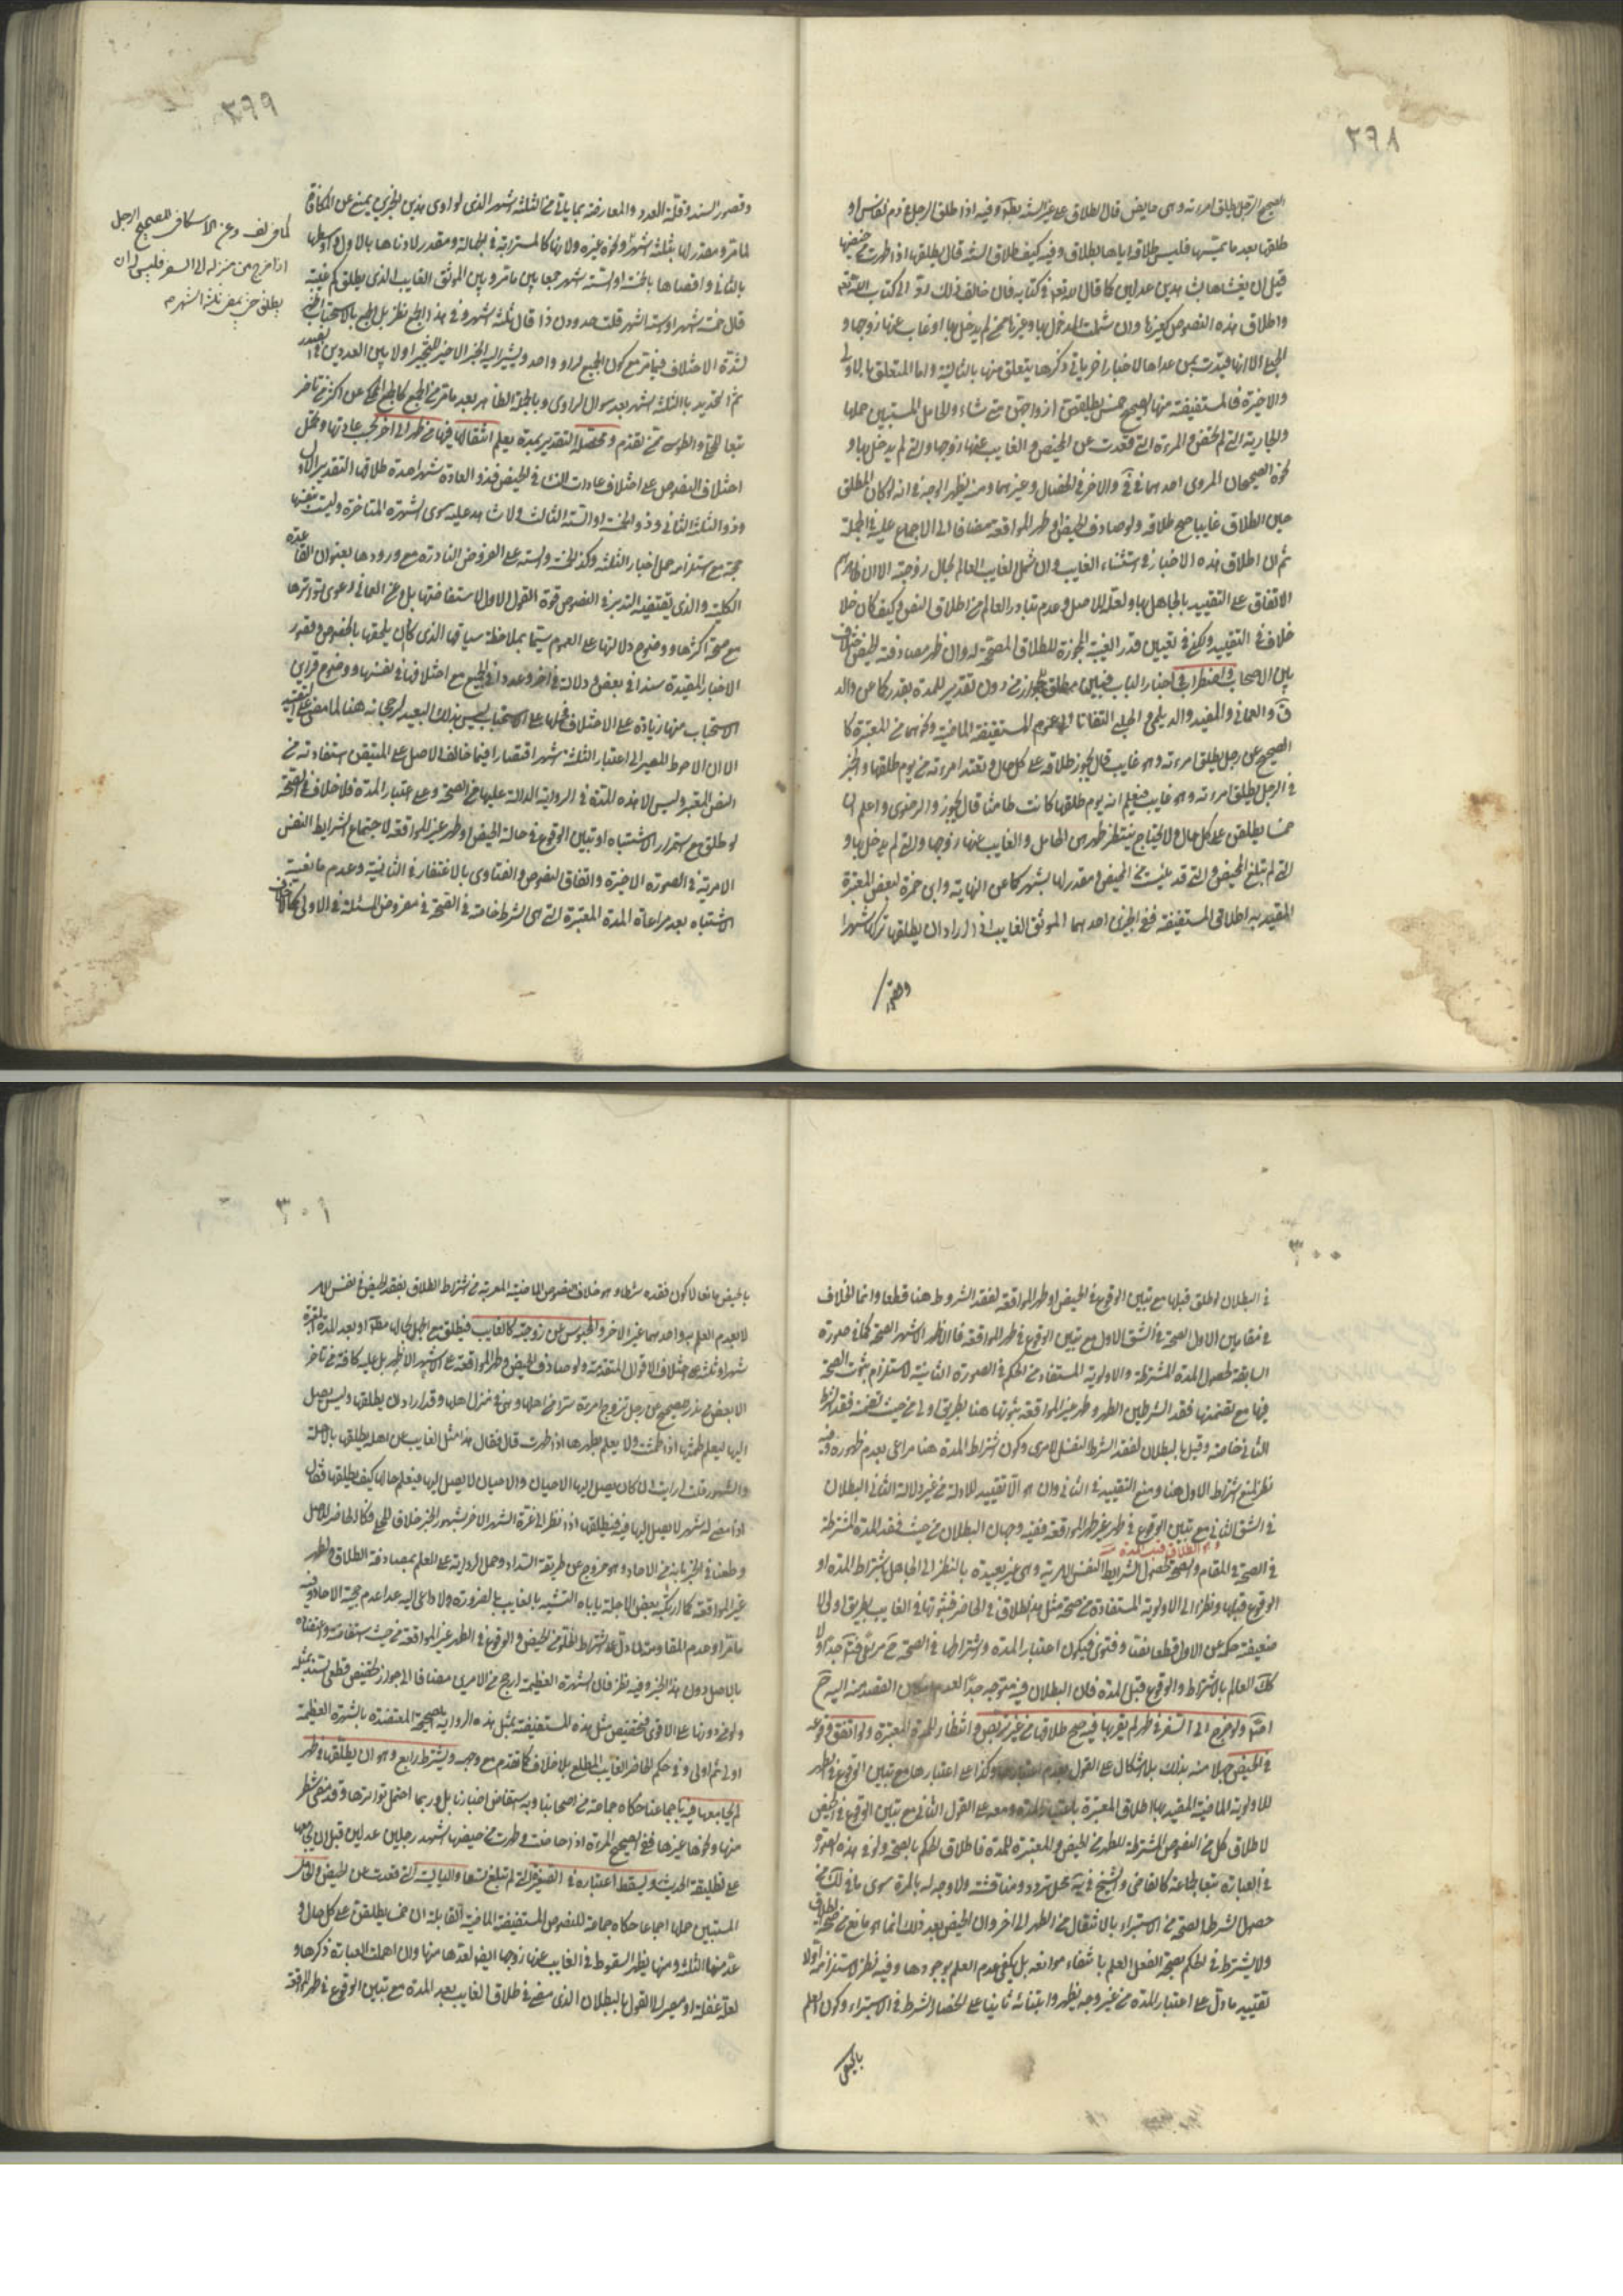 ٢٩٨
الصحيح الرجل يطلق امرأته وهي حايض قال الطلاق على غير السنة باطل وفيه اذا طلق الرجل في دم النفاس او
طلقها بعد ما يمسّها فليس طلاقه اياها بطلاق وفيه كيف طلاق السنة قال يطلقها اذا طهرت من حيضها
قبل ان يغشاها بشاهدين عدلين كما قال الله في كتابه فان خالف ذلك رد الى كتاب الله
واطلاق هذه النصوص كغيرها وان شمل المدخول بها وغيرها حتى لم يدخل بها او غاب عنها زوجها و
الحبلى الا انها قيدت بمن عداها لاخبار اخر ياتي ذكرها يتعلق منها بالثانية واما المتعلق بالاولى
والاخيرة فالمستفيضة منها الصحيح خمس يطلقهن ازواجهن متى شاؤا الحامل المستبين حملها
والجارية التي لم تحض والمرءة التي قعدت عن الحيض والغايب عنها زوجها والتي لم يدخل بها و
نحوه الصحيحان المروي احدهما في والاخر في الخصال وغيرهما ومنه يظهر الوجه في انه لو كان المطلق
حين الطلاق غايبا صح طلاقه ولو صادف الحيض او طهر المواقعة مضافا الى الاجماع عليه في الجملة
ثم ان اطلاق هذه الاخبار في استثناء الغايب وان شمل الغايب العالم بحال زوجته الا ان ظاهرهم
الاتفاق على التقييد بالجاهل بها ولعله للاصل وعدم تبادر العالم من اطلاق النص وكيف كان فلا
خلاف في التقييد ولكن في تعيين قدر الغيبة المجوزة للطلاق المصححة له وان ظهر مصادفته للحيض خلاف
بين الاصحاب واضطراب في اخبار الباب فبين مطلق للجواز من دون تقدير للمدة بقدر كما عن والد
ق والعماني والمفيد والديلمي والحلبي التفاتا الى عموم المستفيضة الماضية ونحوهما من المعتبرة كا
الصحيح عن رجل يطلق امرءته وهو غايب قال يجوز طلاقه على كل حال وتعتد امرءته من يوم طلقها والخبر
في الرجل يطلق امرأته وهو غايب فيعلم انه يوم طلقها كانت طامثا قال يجوز والرضوي واعلم ان
خمسا يطلقن على كل حال ولا يحتاج ينتظر طهرهن الحامل والغايب عنها زوجها والتي لم يدخل بها و
التي لم تبلغ الحيض والتي قد يئست من الحيض ومقدر لها بشهر كما عن النهاية وابن حمزة لبعض المعتبرة
المقيد به اطلاق المستفيضة ففي الخبرين احدهما الموثق الغايب اذا اراد ان يطلقها تركها شهرا
٢٩٩
وقصور السند وقلة العدد والمعارضة بما ياتي من الثلثة اشهر الذي لو ادى هذين الخبرين يمنع عن المكافاة
لما مر ومقدر لها بثلثة اشهر ونحوه غيره ولانها كالمسترابة في الجهالة ومقدر لادناها بالاول واوسطها
بالثاني واقصاها بالخمسة او الستة اشهر جمعا بين ما مر وبين الموثق الغايب الذي يطلق كم غيبته
قال خمسة اشهر او ستة اشهر قلت حد دون ذا قال ثلثة اشهر وفي هذا الجمع نظر بل الجمع بالاستحباب اظهر
لشدة الاختلاف فيما مر مع كون الجميع لراو واحد ويشير اليه الخبر الاخير للتخيير اولا بين العددين
ثم التحديد بالثلثة اشهر بعد سوال الراوي وبالجملة الظاهر بعد ما مر من الجمع كالجمع المحكي عن اكثر من تاخر
تبعا والطوسي ممن تقدم ومحصله التقدير بمدة يعلم انتقالها فيها من طهر الى اخر بحسب عادتها ويحمل
اختلاف النصوص على اختلاف عادات النساء في الحيض فذو العادة شهرا مدة طلاقها التقدير الاول
وذو الثلثة الثاني وذو الخمسة او الستة الثالث ولا شاهد عليه سوى الشهرة المتاخرة وليست بنفسها
حجة مع استلزامه حمل اخبار الثلثة وكذا الخمسة والستة على الفروض النادرة مع ورودها بعنوان القاعدة
الكلية والذي يقتضيه التدبر في النصوص قوة القول الاول لاستفاضتها بل وعن العماني دعوى تواترها
مع صحة اكثرها ووضوح دلالتها على العموم سيما بملاحظة سياقها الذي كان يلحقها بالخصوص وقصور
الاخبار المقيدة سندا في بعض ودلالة في اخر وعددا في الجميع مع اختلافها في نفسها ووضوح قراين
الاستحباب منها زيادة على الاختلاف فحملها على الاستحباب ليس بذلك البعيد لرجحانه هنا لما مضى على التقييد
الا ان الاحوط المصير الى اعتبار الثلثة اشهر اقتصارا فيما خالف الاصل على المتيقن استفادته من
النص المعتبر وليس الا هذه المدة في الرواية الدالة عليها من الصحة وعلى اعتبار المدة فلا خلاف في الصحة
لو طلق مع استمرار الاشتباه او تبين الوقوع في حالة الحيض او طهر غير المواقعة لاجتماع الشرايط النفس
الامرية في الصورة الاخيرة واتفاق النصوص والفتاوى بالاغتفار في الثانية وعدم مانعية
الاشتباه بعد مراعاة المدة المعتبرة التي هي الشرط خاصة في الصحة في مفروض المسئلة في الاولى كما لا خلاف
اذا خرج من منزله الى السفر فليس له ان
يطلق حتى يمضي ثلثة اشهر
٣٠٠
في البطلان لو طلق قبلها مع تبين الوقوع في الحيض او طهر المواقعة لفقد الشروط هنا قطعا وانما الخلاف
في مقامين الاول الصحة في الشق الاول مع تبين الوقوع في طهر المواقعة فالاظهر الاشهر الصحة كما في صورة
السابقة لحصول المدة المشترطة والاولوية المستفادة من الحكم في الصورة الثانية لاستلزام ثبوت الصحة
فيها مع تضمنها فقد الشرطين الطهر وطهر غير المواقعة ثبوتها هنا بطريق اولى من حيث تضمنه فقد الشرط
الثاني خاصة وقيل بالبطلان لفقد الشرط النفس الامري وكون اشتراط المدة هنا مراعى بعدم ظهوره وفيه
نظر لمنع اشتراط الاول هنا ومنع التقييد في الثاني وان هو الا تقييد للادلة من غير دلالة الثاني البطلان
في الشق الثاني مع تبين الوقوع في طهر غير طهر المواقعة ففيه وجهان البطلان من حيث فقد المدة المشترطة
في الصحة في المقام والصحة لحصول الشرايط النفس الامرية وهي غير بعيدة بالنظر الى الجاهل باشتراط المدة او
الوقوع قبلها ونظرا الى الاولوية المستفادة من صحة مثل هذا الطلاق في الحاضر فثبوتها في الغايب بطريق اولى لا
ضعيفة حكمه عن الاول قطعا نصا وفتوى فيكون اعتبار المدة واشتراطها في الصحة
العالم بالاشتراط والوقوع قبل المدة فان البطلان فيه متوجه جدا لعدم القصد منه اليه ح
ولو خرج الى السفر في طهر لم يقربها فيه صح طلاقها من غير تربص وانتظار للمدة المعتبرة ولو اتفق وقوعه
في الحيض جهلا منه بذلك بلا اشكال على القول بعدم اعتبارها وكذا على اعتبارها مع تبين الوقوع في الطهر
للاولوية الماضية المقيد بها اطلاق المعتبرة باعتبار المدة ومعه على القول الثاني مع تبين الوقوع في الحيض
لاطلاق كل من النصوص المشترطة للطهر من الحيض والمعتبرة للمدة فاطلاق الحكم بالصحة ولو في هذه الصورة
في العبارة تبعا لجماعة كالقاضي والشيخ في محل تردد ومناقشة ولا وجه له بالمرة سوى ما في لك من
حصول شرط الصحة من الاستبراء بالانتقال من الطهر الى اخر وان الحيض بعد ذلك انما هو مانع من صحة الطلاق
ولا يشترط في الحكم بصحة الفعل العلم بانتفاء موانعه بل يكفي عدم العلم بوجودها وفيه نظر لاستلزامه اولا
تقييد ما دل على اعتبار المدة من غير وجه يظهر وابتنائه ثانيا على انحصار الشرط في الاستبراء وكون العلم
بالحيض
٣٠١
بالحيض مانعا لا كون فقده شرطا وهو خلاف النصوص الماضية المعربة عن اشتراط الطلاق بفقد الحيض في نفس الامر
لا بعدم العلم به واحدهما غير الاخر والمحبوس عن زوجته كالغايب فيطلق مع الجهل بحالها مطلقا او بعد المدة المعتبرة
شهرا او ثلثة على اختلاف الاقوال المتقدمة ولو صادف الحيض وطهر المواقعة على الاشهر الاظهر بل عليه كافة من تاخر
الا بعض من ندر للصحيح عن رجل تزوج امرءة سرا من اهلها وهي في منزل اهلها وقد اراد ان يطلقها وليس يصل
اليها ليعلم طمثها اذا طمثت ولا يعلم بطهرها اذا طهرت قال فقال هذا مثل الغايب عن اهله يطلقها بالاهلة
والشهور قلت ارايت ان كان يصل اليها الاحيان والاحيان لا يصل اليها فيعلم حالها كيف يطلقها فقال
اذا مضى له شهر لا يصل اليها فيه فيطلقها اذا نظر الى غرة الشهر الاخر بشهود الخبر خلافا للحلي فكالحاضر للاصل
وطعنا في الخبر بانه من الاحاد وهو خروج عن طريقة السداد وحمل الرواية على العلم بمصادفة الطلاق للطهر
غير المواقعة كما ارتكبه بعض الاجلة ياباه التشبيه بالغايب بالضرورة ولا داعي اليه عدا عدم حجية الاحاد وفيه
ما مر او عدم المقاومة لما دل على اشتراط الخلو من الحيض والوقوع في الطهر غير المواقعة من حيث استفاضته واعتضاده
بالاصل دون هذا الخبر وفيه نظر فان الشهرة العظيمة ارجح من الامرين مضافا الى جواز تخصيص قطعي السند بمثله
ولو دونها على الاقوى فتخصيص مثل هذه المستفيضة بمثل هذه الرواية الصحيحة المعتضدة بالشهرة العظيمة
اولى ثم اولى وفي حكم الحاضر الغايب المطلع بلا خلاف كما تقدم مع وجهه ويشترط رابع وهو ان يطلقها في طهر
لم يجامعها فيه باجماعنا حكاه جماعة من اصحابنا وبه استفاض اخبارنا بل وربما احتمل تواترها وقد مضى شطر
منها ونحوها غيرها ففي الصحيح المرءة اذا حاضت وطهرت من حيضها اشهد رجلين عدلين قبل ان يجامعها
على تطليقة الحديث ويسقط اعتباره في الصغيرة التي لم تبلغ تسعا واليائسة التي قعدت عن الحيض والحامل
المستبين حملها اجماعا حكاه جماعة للنصوص المستفيضة الماضية القايلة ان خمسا يطلقن على كل حال و
عد منها الثلثة ومنها يظهر السقوط في الغايب عنها زوجها ايضا لعدها منها وان اهملت العبارة ذكرها و
لعله غفلة او مصير الى القول بالبطلان الذي مضى في طلاق الغايب بعد المدة مع تبين الوقوع في طهر المواقعة